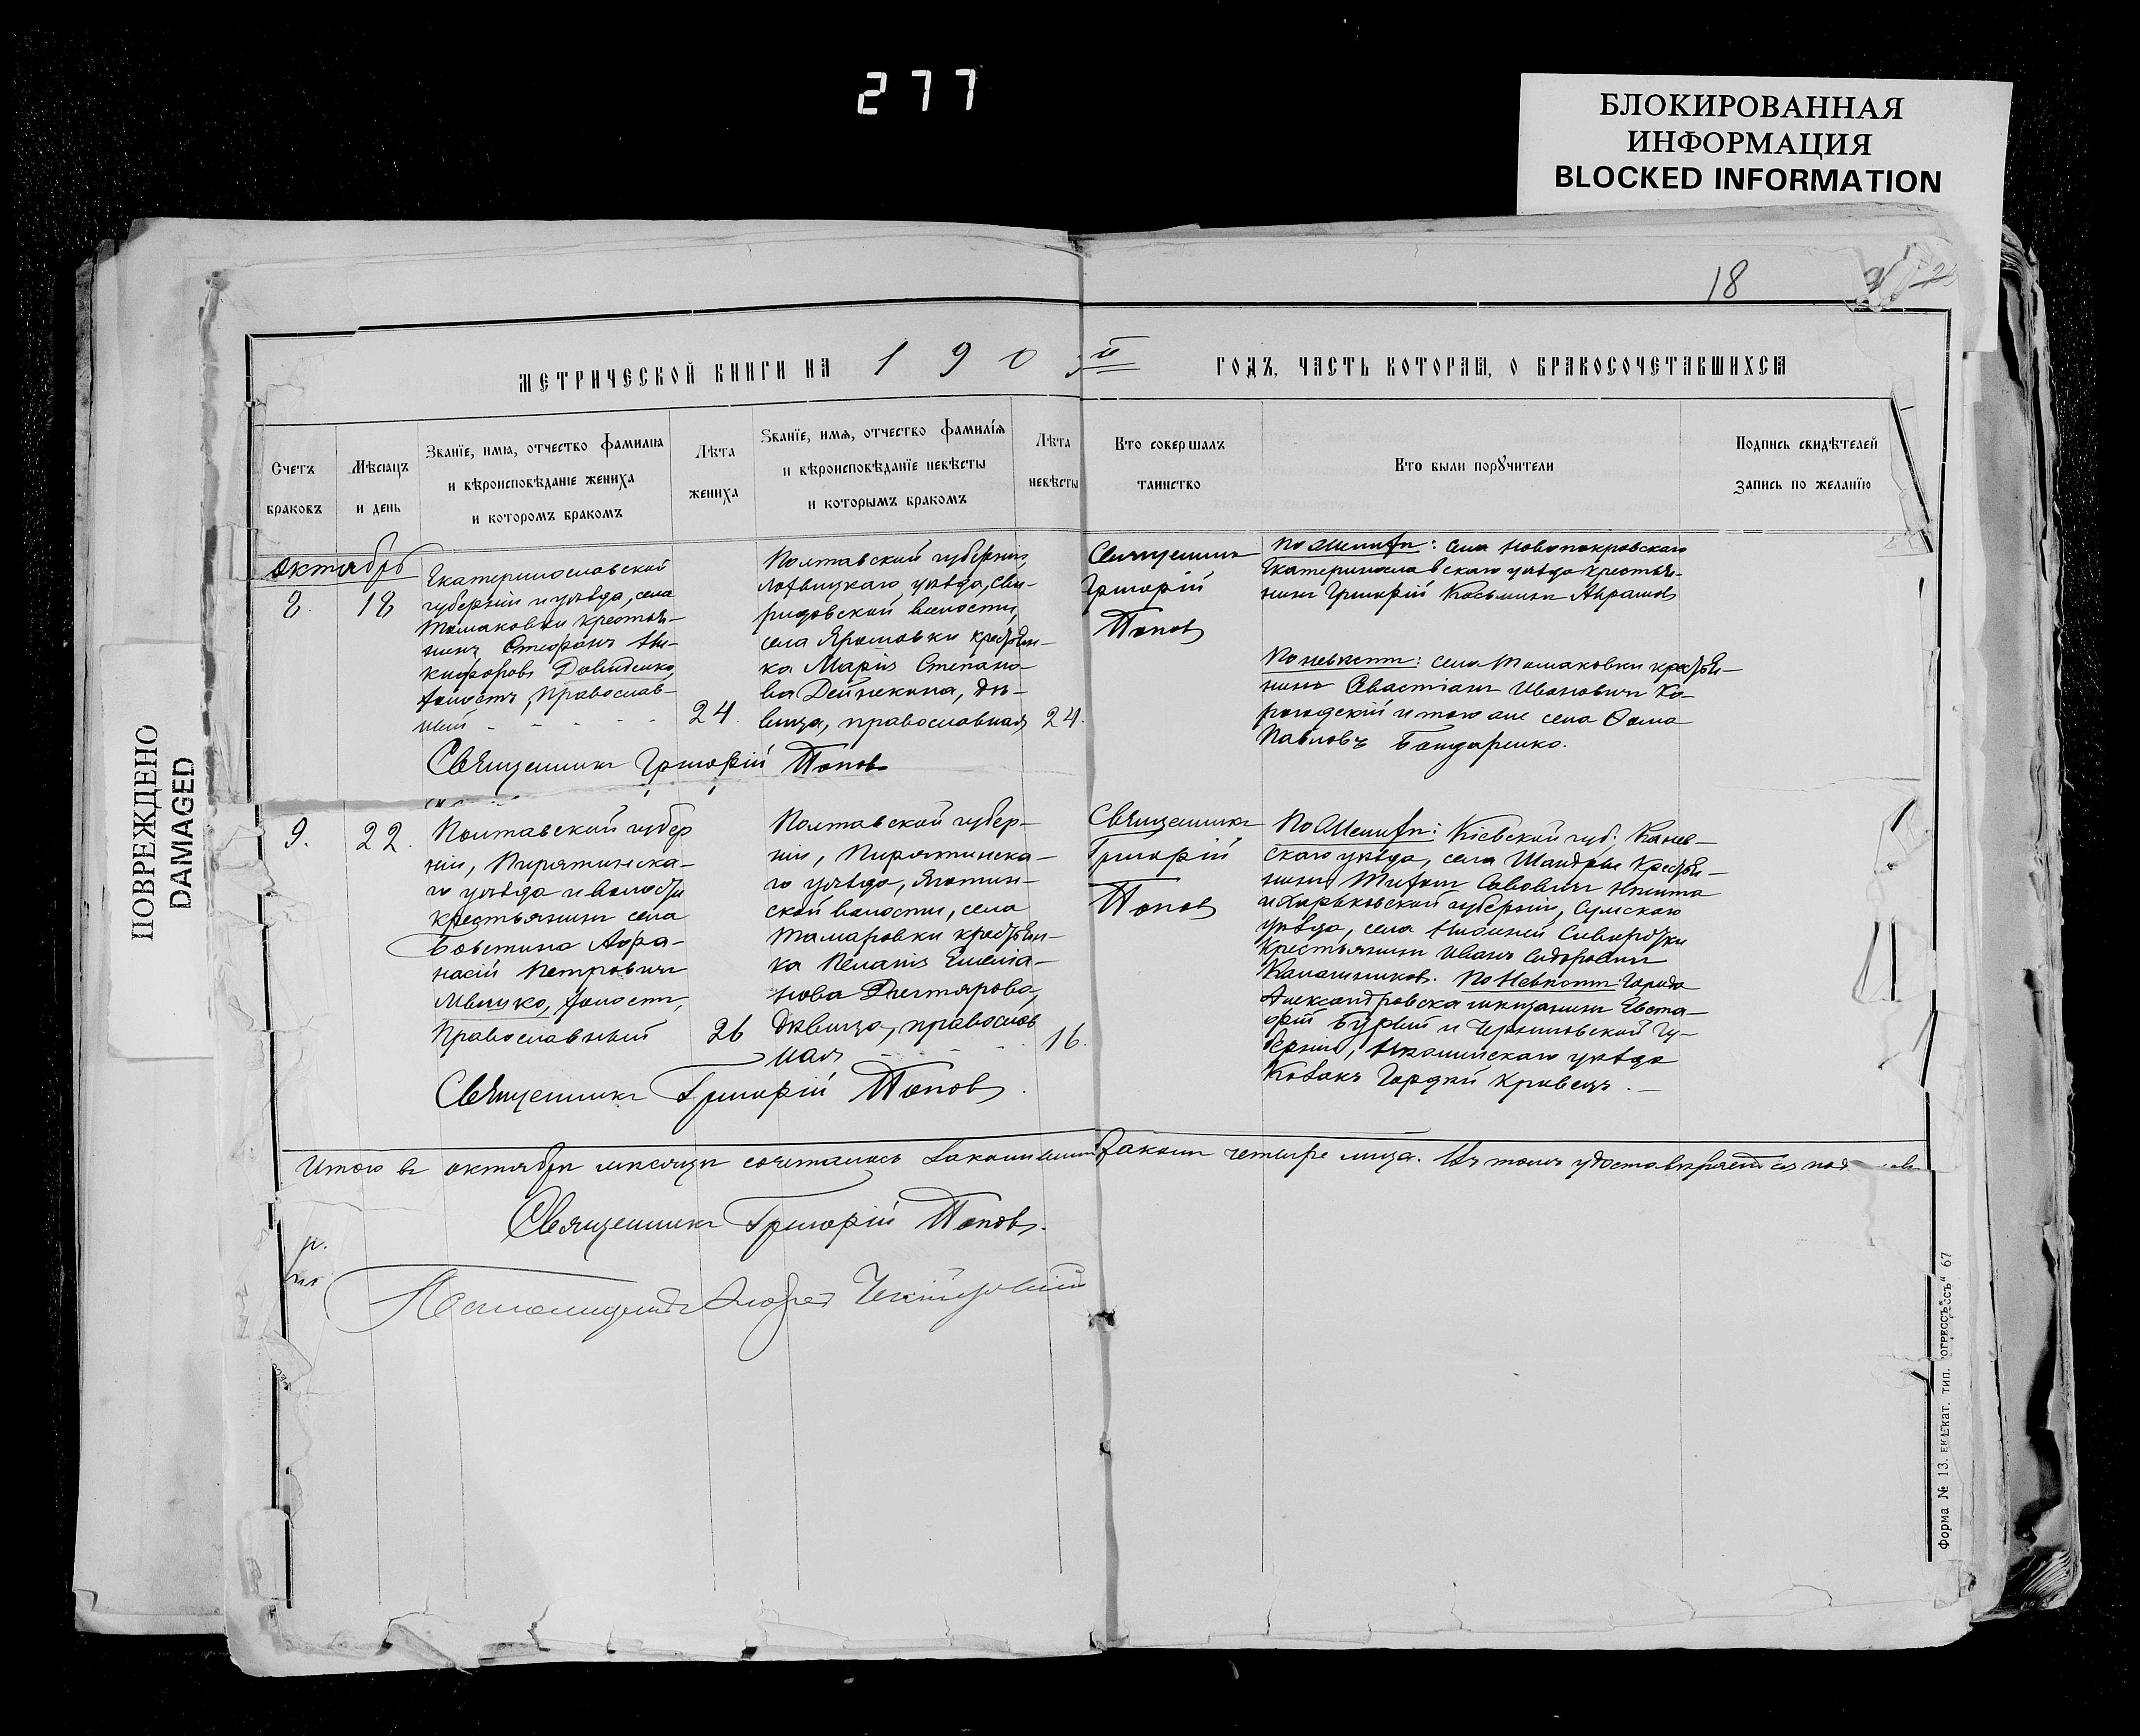 277
БЛОКИРОВАННАЯ
ИНФОРМАЦИЯ
BLOCKED INFORMATION
ПОВРЕЖДЕНО
DAMAGED
18
МЕТРИЧЕСКОЙ КНИГИ НА 190 й ГОДЪ, ЧАСТЬ КОТОРАЯ, О БРАКОСОЧЕТАВШИХСЯ
Счетъ
браковъ
Мѣсяцъ
и день
Званїе, имя, отчество фамилия
и вѣроисповѣданїе жениха
и которомъ бракомъ
Лѣта
жениха
Званїе, имя, отчество фамилїя
и вѣроисповѣданїе невѣсты
и которымъ бракомъ
Лѣта
невѣсты
Кто совершалъ
таинство
Кто были поручители
Подпись свидѣтелей
запись по желанїю
Октябрь
8.
18
Екатеринославской
губерніи и уѣзда, села
Томаковки крестья-
нинъ Стефанъ Ни-
кифоровъ Давиденко,
холостъ, православ-
ный - - - - -
24.
Полтавской губерніи,
Лохвицкаго уѣзда, Сви-
ридовской волости,
села Яромовки крестьян-
ка Марія Степано-
ва Дейнекина, дѣ-
вица, православная
24.
Священникъ
Григорій
Поповъ
По женихѣ: села Новопокровскаго
Екатеринославскаго уѣзда крестья-
нинъ Григорій Косьминъ Абрамовъ
По невѣстѣ: села Томаковки крестья-
нинъ Севастіанъ Ивановичъ Ко-
рогодскій и того же села Фома
Павловъ Бондаренко.
Священникъ Григорій Поповъ
9.
22.
Полтавской губер
ніи, Пирятинска-
го уѣзда и волости
крестьянинъ села
Ковстина Афа-
насій Петровичъ
Ивлицко, холостъ,
Православный
26
Полтавской губер-
ніи, Пирятинска-
го уѣзда, Яготин-
ской волости, села
Тамаровки крестьян-
ка Пелагія Емелiа-
нова Дегтярова,
дѣвица, православ
ная - - -
16.
Священникъ
Григорій
Поповъ
По женихѣ: Кіевской губ. Канев-
скаго уѣзда, села Шандры крестья-
нинъ Титъ Савовичъ Никита
и Харьковской губерніи, Сумскаго
уѣзда, села Нижней Сыворотки
крестьянинъ Иванъ Сидоровичъ
Калашниковъ. По Невѣстѣ: Города
Александровска мѣщанинъ Евста-
фій Бурый и Черниговской гу-
берніи, Нѣжинскаго уѣзда
козакъ Гордѣй Кривецъ. —
Священникъ Григорій Поповъ.
Итого въ октябрѣ мѣсяцѣ сочеталось законнымъ бракомъ четыре лица. Въ томъ удостовѣряемъ съ под
Священникъ Григорій Поповъ.
Псаломщикъ Андрей
Форма № 13. Екат. тип. „Прогрессъ“ 67